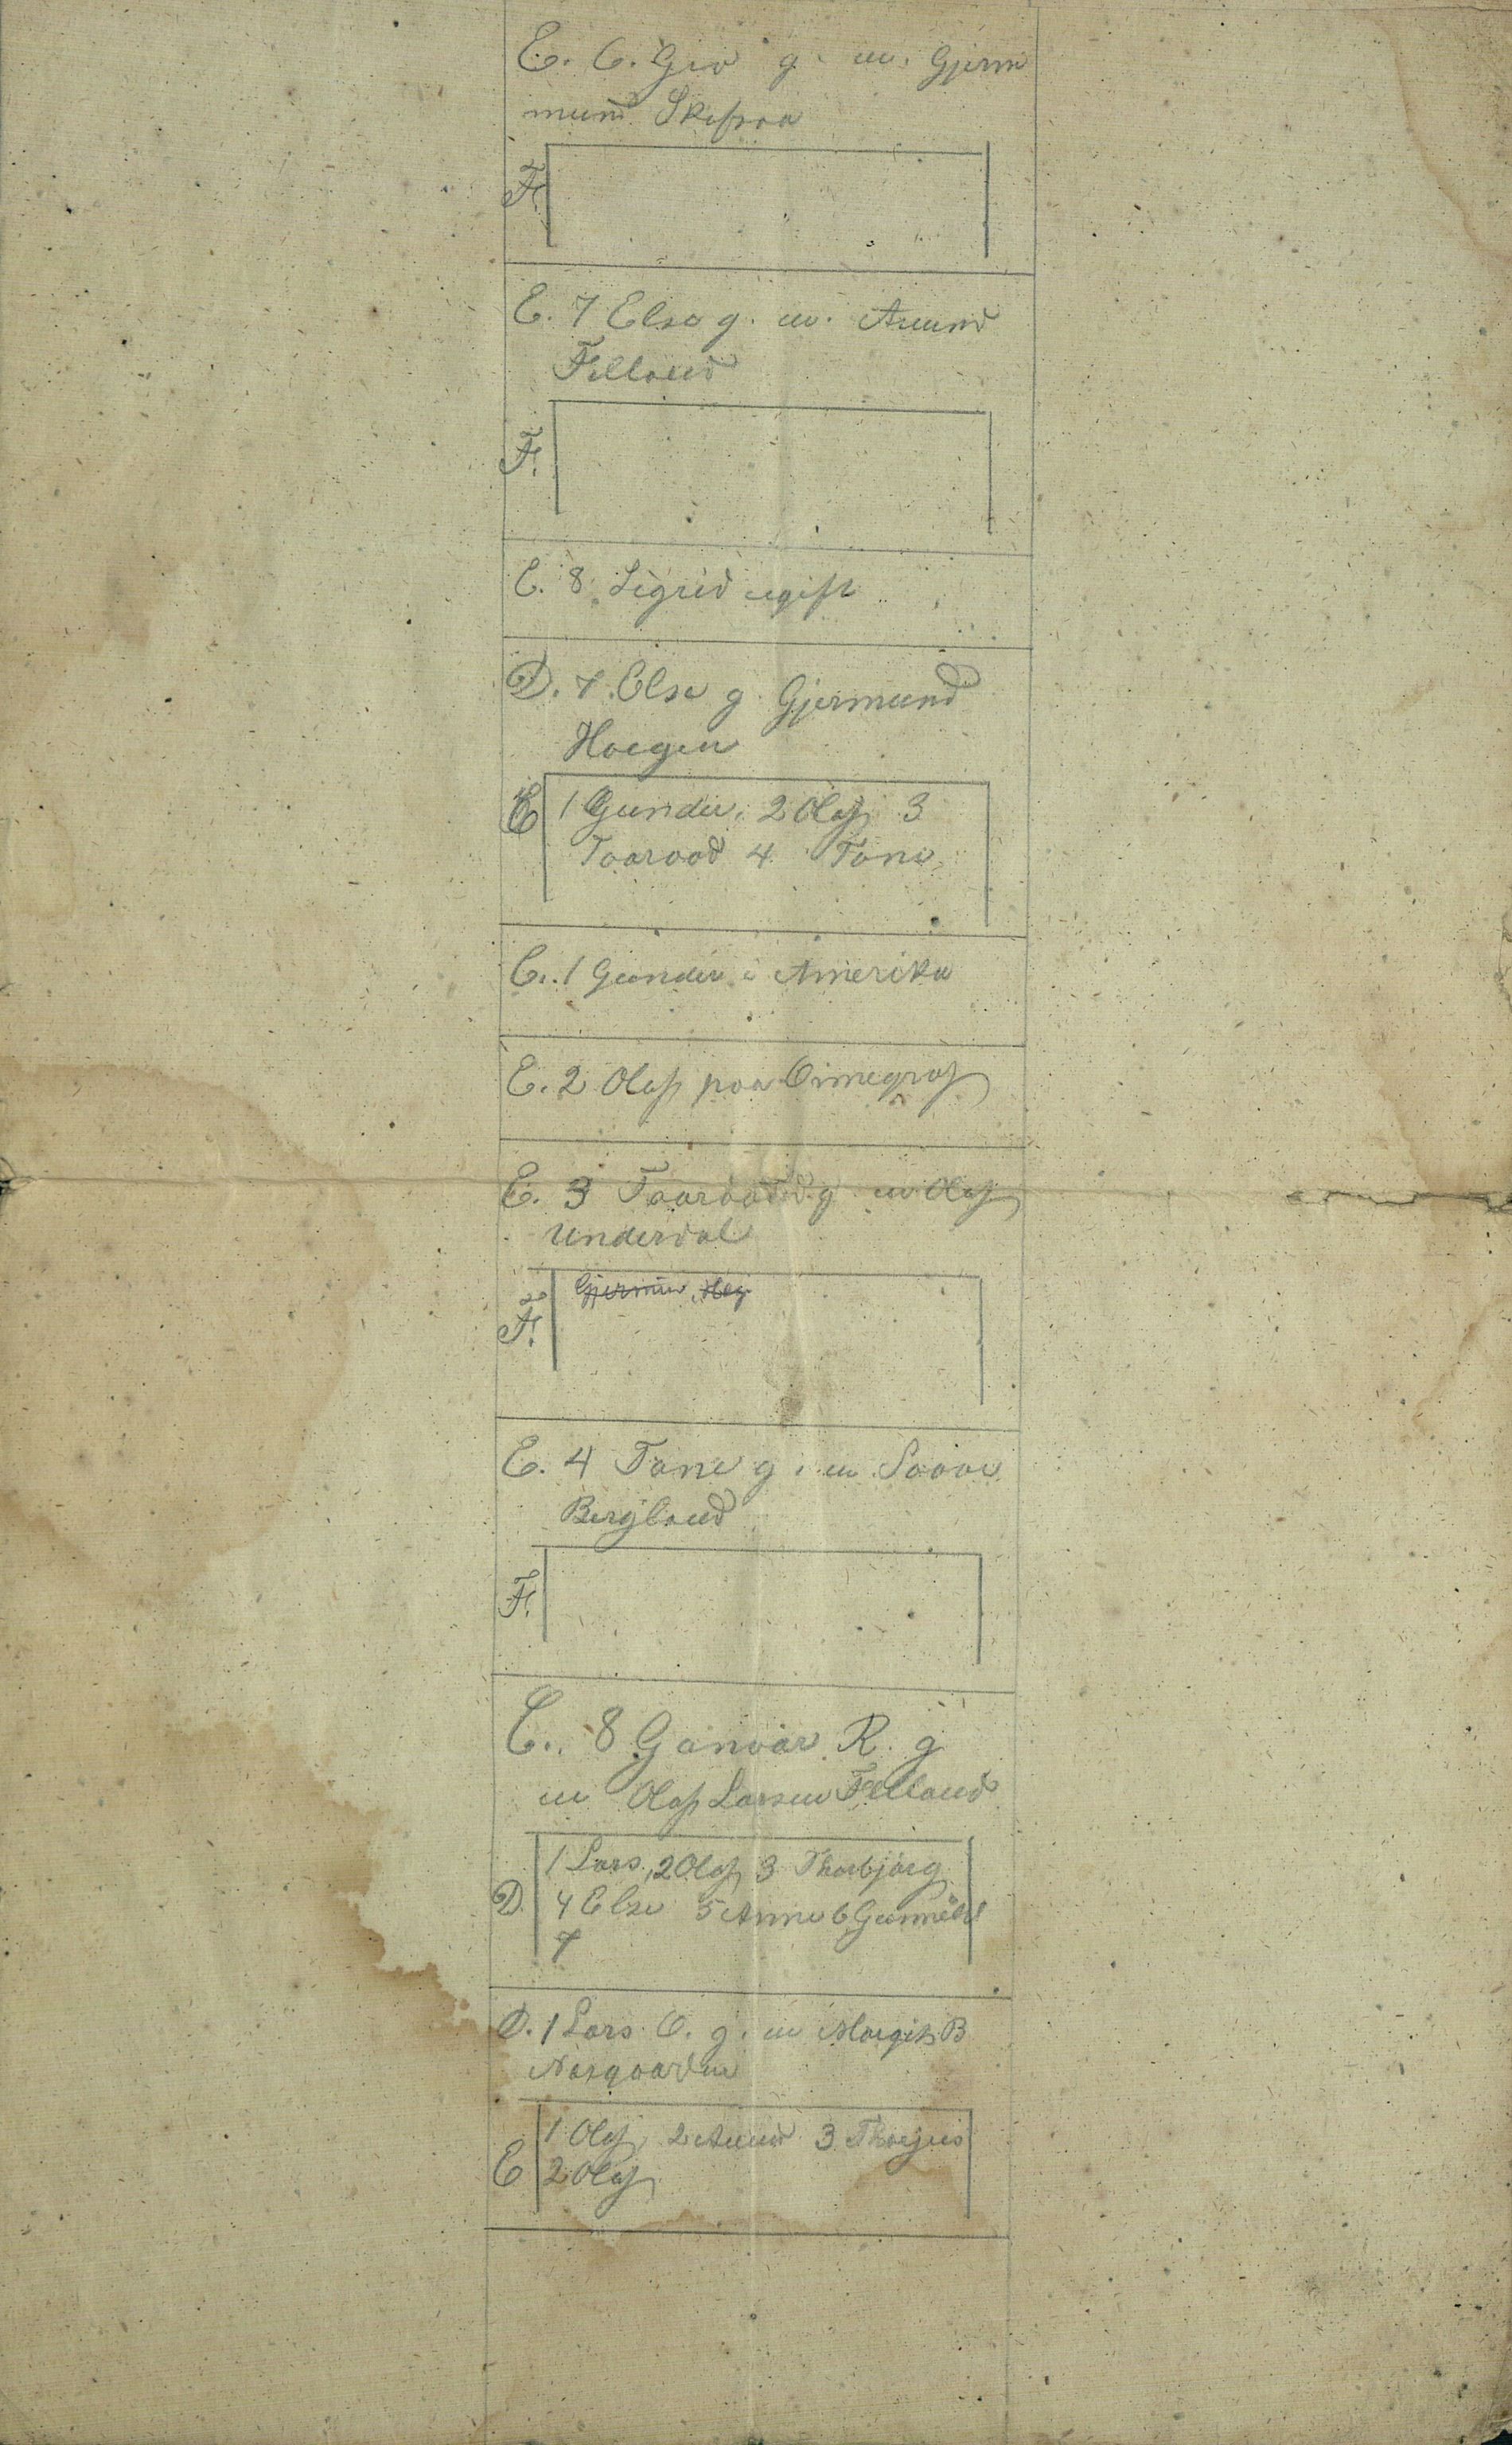 E. 6. Gro g. m. Gjerm
mund Skefraa
F.
E. 7 Else g. m. Aamund
Felland
F.
E. 8. Sigrid ugift
D. 7. Else g. Gjermund
Haugen
E 1 Gunder, 2 Olaf 3
Taaraad 4 Tone
E. 1 Gunder i Amerika
E. 2 Olaf paa
E. 3 Taaraad g m Olaf
Underdal
F. Gjermun
E. 4 Tone g. m
Bergland
F.
C. 8 Gonvar R. g
m Olaf Larsen Felland
1 Lars, 2 Olaf 3 Thorbjørg
D. 4 Else 5 Anne 6 Gunnild
7
D. 1 Lars O. g. m Margit B
Nasgaarden
1 Olaf 2 3
E 2 Olaf